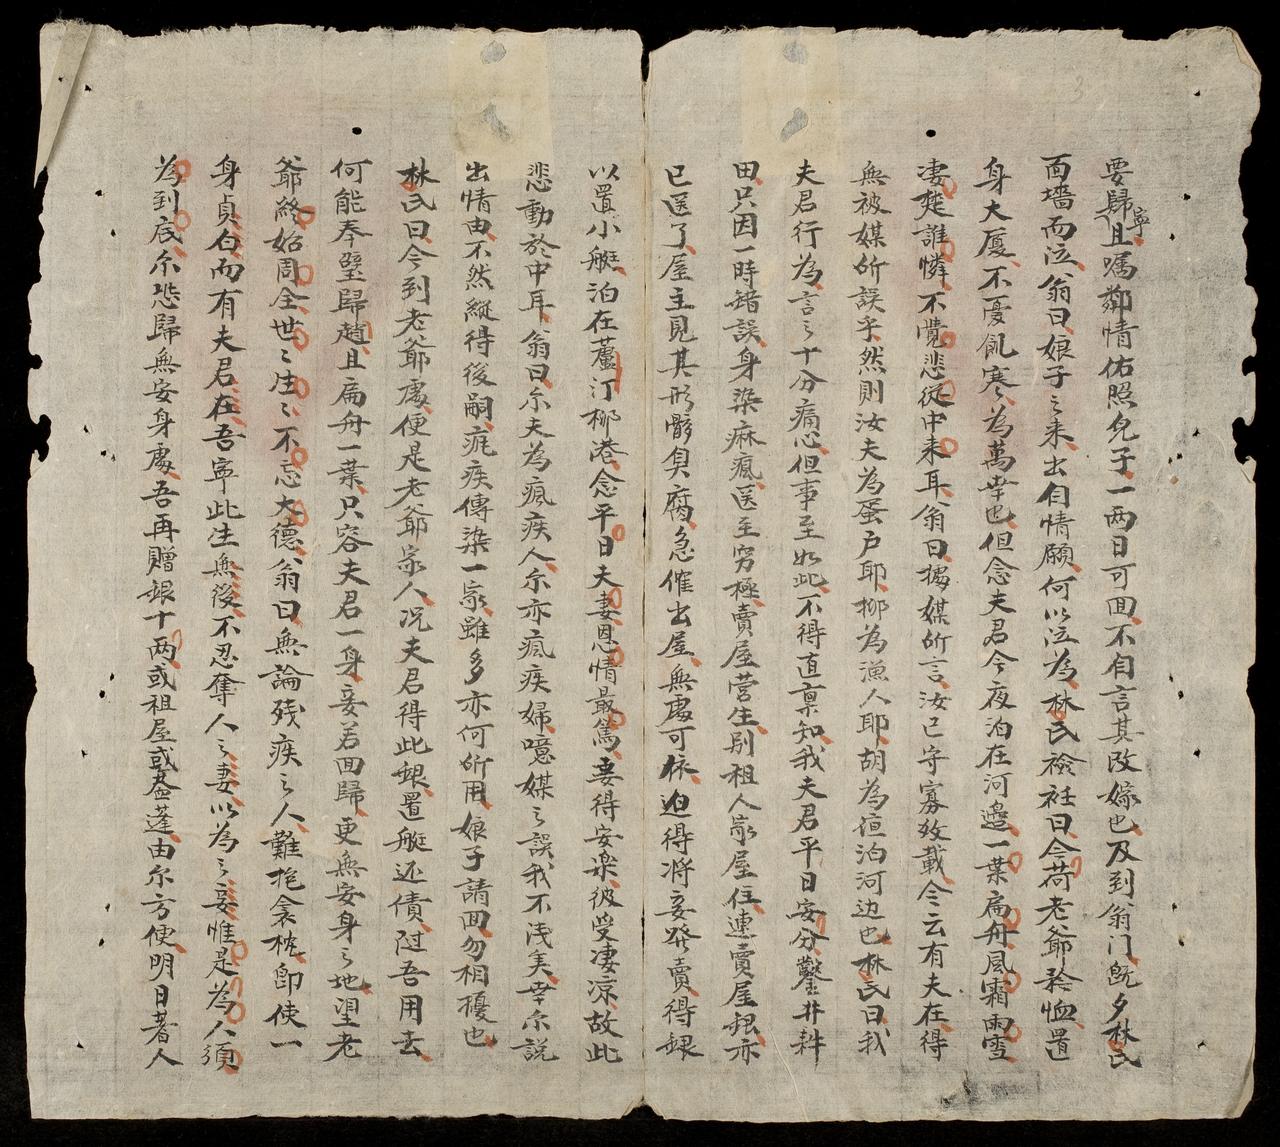 要歸寧且囑鄰情佑照兒子一两日可回不自言其改嫁也及到翁门既夕林氏
面墻而泣翁曰娘子之来出自情願何以泣為林氏襝衽曰今荷老爺矜恤置
身大厦不憂飢寒為萬幸也但念夫君今夜泊在河邊一葉扁舟風霜雨雪
凄楚誰憐不覺悲從中来耳翁曰據媒所言汝已守寡数載今云有夫在得
無被媒所誤乎然則汝夫為蛋户耶柳為漁人耶胡為泊河边也林氏曰我
夫君行為言之十分痛心但事至如此不得直禀知我夫君平日安分鑿井耕
田只因一時錯誤身染麻瘋医至穷極賣屋营生别祖人家屋住連賣屋銀亦
已医了屋主見其形骸臭腐急催出屋無處可依迫得将妾發賣得銀
以置小艇泊在蘆汀柳港念平日夫妻恩情最篤妾得安楽彼受凄凉故此
悲動於中耳翁曰尔夫為瘋疾人尔亦瘋疾婦噫媒之誤我不浅矣幸尔說
出情由不然縱得後嗣疾傳染一家雖多亦何所用娘子請回勿相擾也
林氏曰今到老爺處便是老爺家人况夫君得此銀置艇还債吾用去
何能奉璧歸趙且扁舟一葉只容夫君一身妾若回歸更無安身之地望老
爺終始周全世之生之不忘大德翁曰無論残疾之人難抱衾枕即使一
身貞白而有夫君在吾寧此生無後不忍奪人之妻以為之妾惟是為人須
為到底尔恐歸無安身處吾再贈銀十两或祖屋或蓬由尔方便明日著人